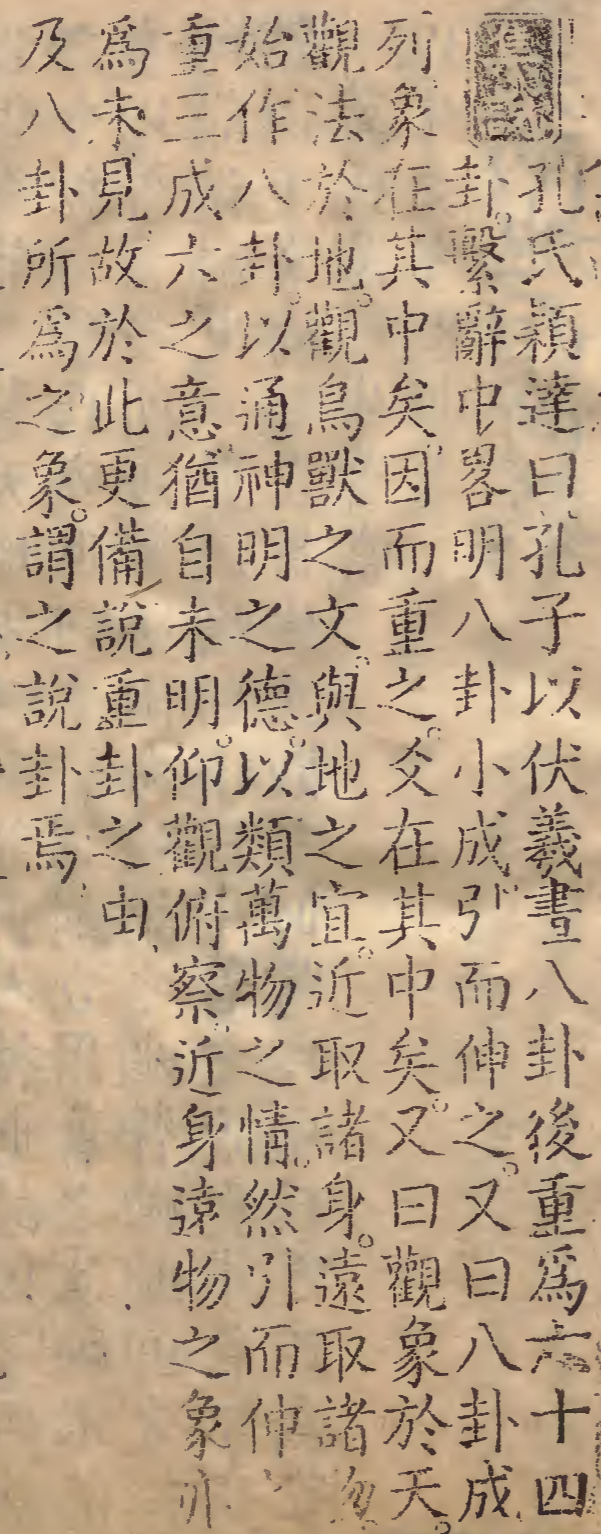 孔氏穎達曰孔子以伏羲畫八卦後重爲六十四
卦。繫辭中畧明八卦小成引而伸之。又曰八卦成
列象在其中矣因而重之。爻在其中矣。又曰觀象於天。
觀法於地。觀鳥獸之文。與地之宜。近取諸身。遠取諸物
始作八卦。以通神明之德。以類萬物之情。然引而伸之
重三成六之意猶自未明。仰觀俯察近身遠物之象亦
爲未見故於此更備說重卦之由
及八卦所爲之象。謂之說卦焉